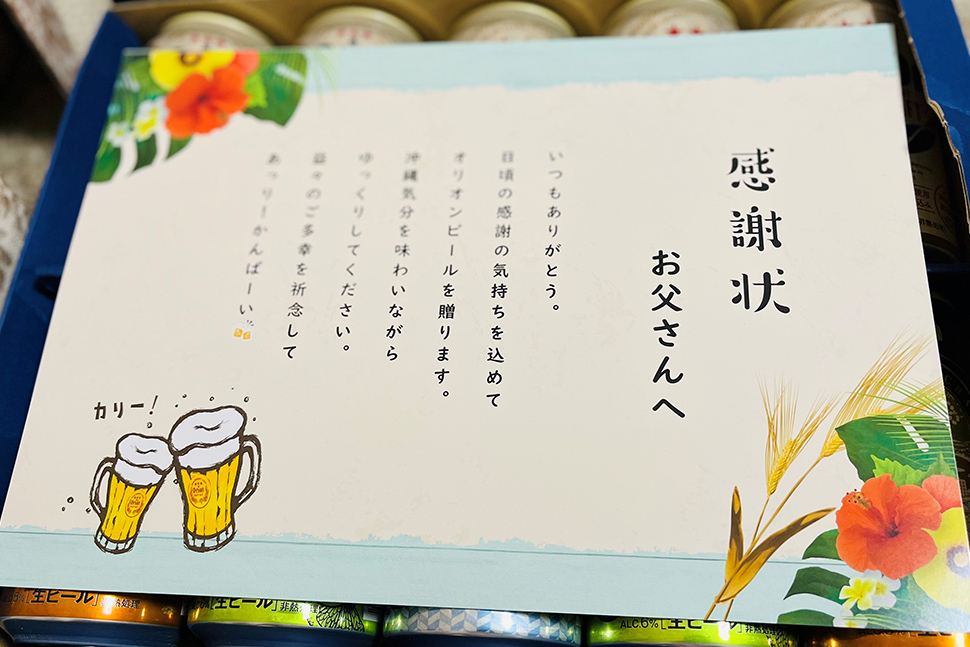 感謝状
お父さんへ
いつもありがとう。
日頃の感謝の気持ちを込めて
オリオンビールを贈ります。
沖縄気分を味わいながら
ゆっくりしてください。
益々のご多幸を祈念して
あっりー!かんぱーい
カリー!
Orion
Orion
[生ビール]非熱処理
[生ビール]非熱処理
ALC.6%[生ビール]非熱処理